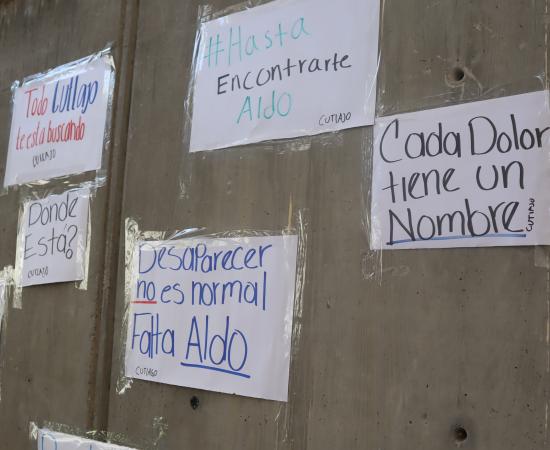 Todo Cutlajo
te está buscando
CUTLAJO
#Hasta
Encontrarte
Aldo
CUTLAJO
Cada Dolor
tiene un
Nombre
CUTLAJO
Donde
Está?
CUTLAJO
Desaparecer
no es normal
Falta Aldo
CUTLAJO